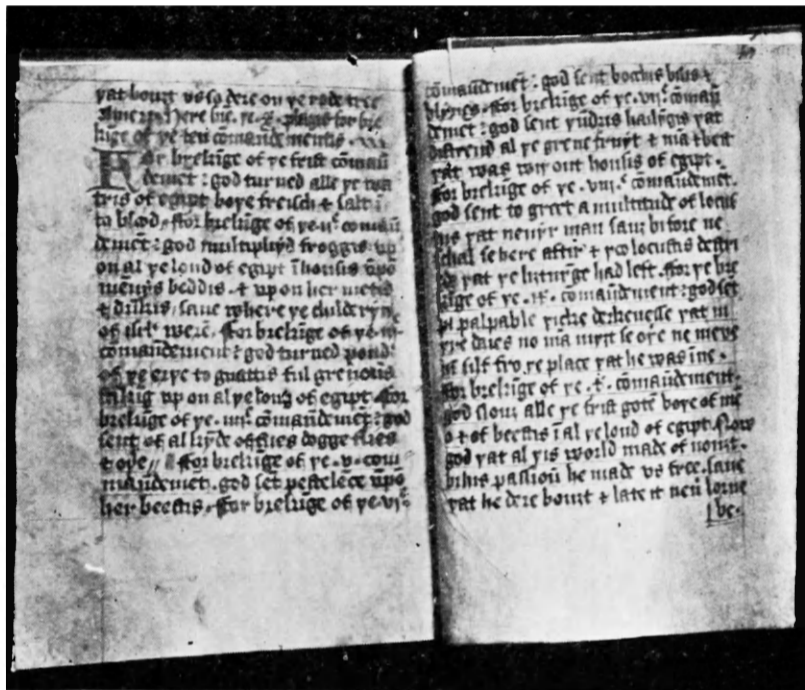 yat bouȝt vs so dere on ye rode tree
Amen. Here bie. ye .x. plagis for bre
kīge of ye ten comaūdementis.
For brekīge of ye first comaū
demēt: god turned alle ye wa
tris of egipt boye freisch & salt ī
to blood. ffor brekīge of ye .ii. comaū
demet: god multiplyd froggis up
on al ye lond of egipt ī housis upō
mennys beddis. & up on her metis
& dischis, saue where ye childeryn
of isrl were. ffor brekīge of ye .iii
comaūdement: god turned poudr
of ye erye to gnattis ful greuous
up on al ye lond of egipt. ffor
brekīge of ye .iiii. comaūdemēt: god
sent of al kyde of flies dogge flies
& oye // ffor brekīge of ye .v. com
maūdemet. god set pestelēce upō
her beestis. ffor brekīge of ye .vi.
comaūdemēt: god sent bocchis biles &
blynes. ffor brekīge of ye .vii. comaū
demet: god sent yūdris hailȝgis yat
distreied al ye grene fruyt & mā & best
yat was wiy out housis of egipt.
ffor brekīge of ye .viii. comaūdemēt.
god sent to greet a multitude of locus
tis yat neuyr man saw bifore ne
schal se here aftir & yo locustis destri
ede yat ye liȝtnyge had left. ffor ye bre
kīge of ye .ix. comaūdement: god set
palpable yicke derkenesse yat in
yre daies no mā miȝt se oye ne meve
hī silf fro ye place yat he was īne.
ffor brekīge of ye .x. comaūdement.
god slow alle ye first gotē boye of me
& of beestis ī al ye lond of egipt. Now
god yat al yis world made of nouȝt.
bi his passioū he made vs free. saue
yat he dere bouȝt & late it neū lorne
be.